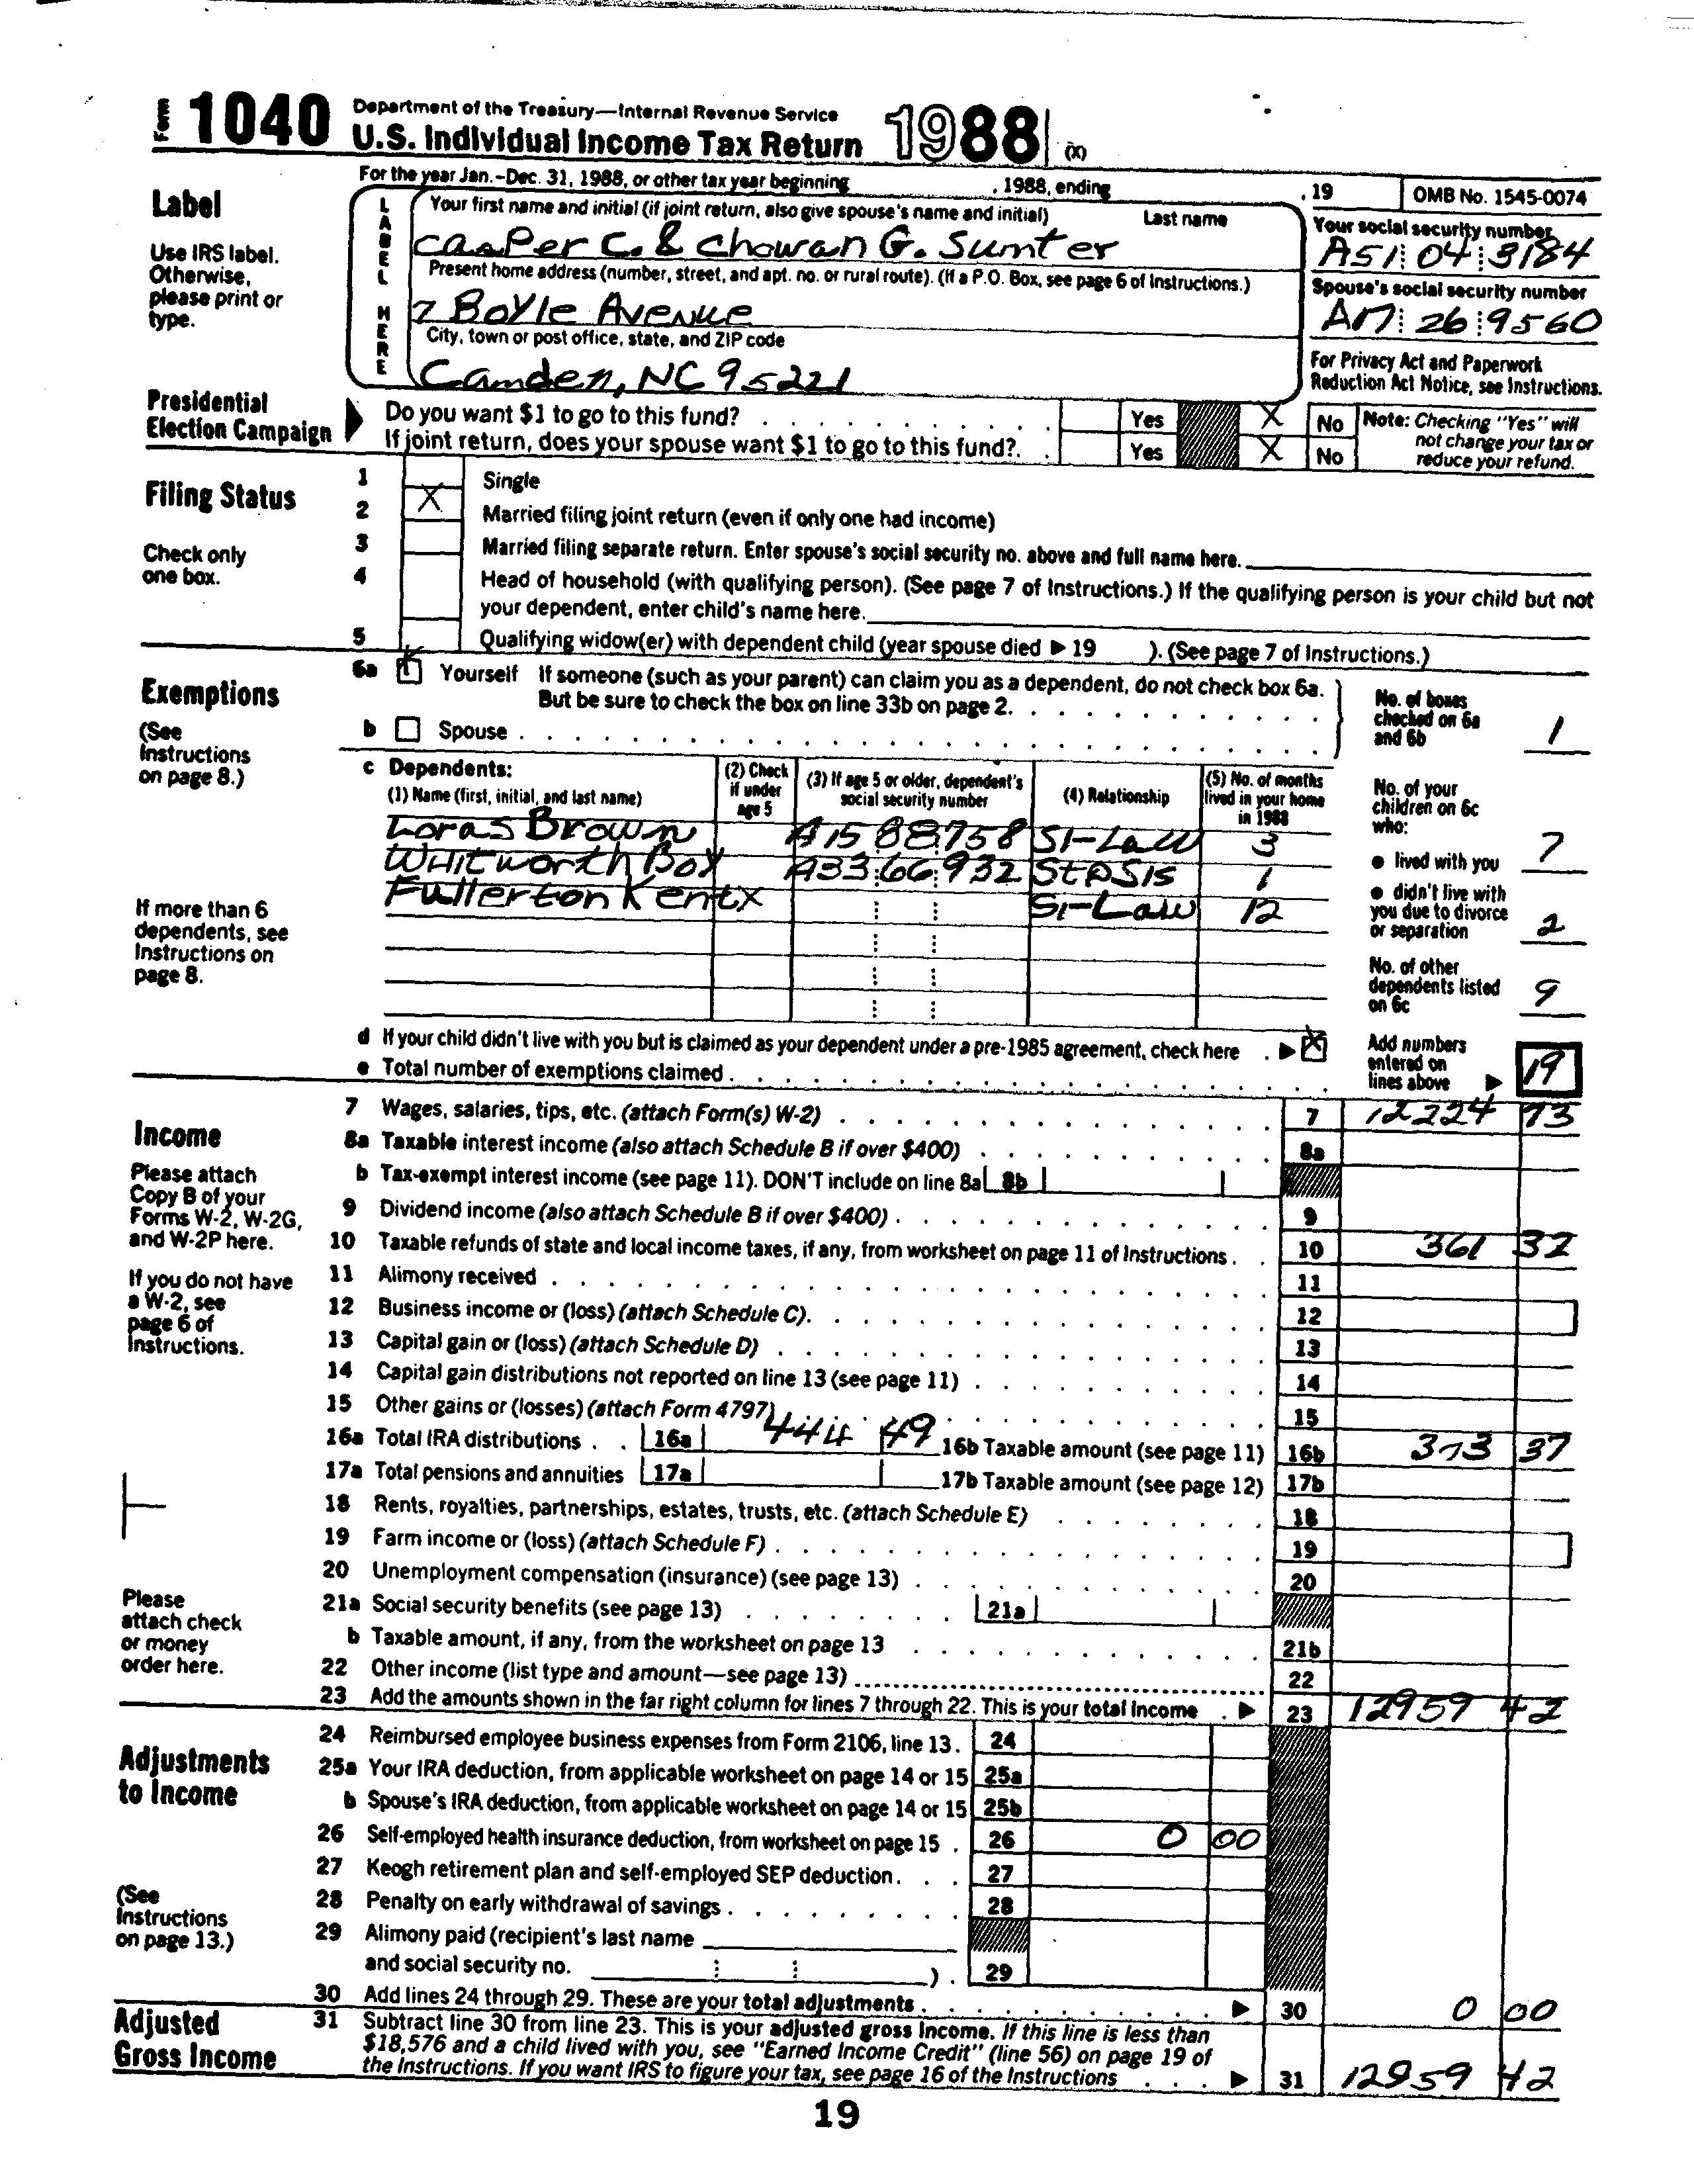 Form 1040 Department of the Treasury—Internal Revenue Service
U.S. Individual Income Tax Return 1988 (X)
For the year Jan.-Dec. 31, 1988, or other tax year beginning , 1988, ending , 19 OMB No. 1545-0074
Label
Use IRS label. Otherwise, please print or type.
LABEL HERE
Your first name and initial (if joint return, also give spouse's name and initial) Last name
Casper C. & Chowan G. Sumter
Your social security number
A51 04 3184
Present home address (number, street, and apt. no. or rural route). (If a P.O. Box, see page 6 of Instructions.)
7 Boyle Avenue
Spouse's social security number
26 9560
City, town or post office, state, and ZIP code
Camden, NC 95221
For Privacy Act and Paperwork Reduction Act Notice, see Instructions.
Presidential Election Campaign
Do you want $1 to go to this fund? Yes X No
If joint return, does your spouse want $1 to go to this fund? Yes X No
Note: Checking "Yes" will not change your tax or reduce your refund.
Filing Status
Check only one box.
1 Single
2 X Married filing joint return (even if only one had income)
3 Married filing separate return. Enter spouse's social security no. above and full name here.
4 Head of household (with qualifying person). (See page 7 of Instructions.) If the qualifying person is your child but not
your dependent, enter child's name here.
5 Qualifying widow(er) with dependent child (year spouse died ▶ 19 ). (See page 7 of Instructions.)
Exemptions
(See Instructions on page 8.)
6a Yourself If someone (such as your parent) can claim you as a dependent, do not check box 6a.
But be sure to check the box on line 33b on page 2.
b Spouse
No. of boxes checked on 6a and 6b 1
c Dependents:
(1) Name (first, initial, and last name) (2) Check if under age 5 (3) If age 5 or older, dependent's social security number (4) Relationship (5) No. of months lived in your home in 1988
Loras Brown A15 88 758 SI-Law 3
Whitworth Box A33 66 932 StpSis 1
Fullerton Kent X SI-Law 12
No. of your children on 6c who:
● lived with you 7
● didn't live with you due to divorce or separation 2
No. of other dependents listed on 6c 9
If more than 6 dependents, see Instructions on page 8.
d If your child didn't live with you but is claimed as your dependent under a pre-1985 agreement, check here ▶ X
e Total number of exemptions claimed
Add numbers entered on lines above ▶ 19
Income
Please attach Copy B of your Forms W-2, W-2G, and W-2P here.
If you do not have a W-2, see page 6 of Instructions.
Please attach check or money order here.
7 Wages, salaries, tips, etc. (attach Form(s) W-2) 7 12224 73
8a Taxable interest income (also attach Schedule B if over $400) 8a
b Tax-exempt interest income (see page 11). DON'T include on line 8a 8b
9 Dividend income (also attach Schedule B if over $400) 9
10 Taxable refunds of state and local income taxes, if any, from worksheet on page 11 of Instructions 10 361 32
11 Alimony received 11
12 Business income or (loss) (attach Schedule C) 12
13 Capital gain or (loss) (attach Schedule D) 13
14 Capital gain distributions not reported on line 13 (see page 11) 14
15 Other gains or (losses) (attach Form 4797) 15
16a Total IRA distributions 16a 444 49 16b Taxable amount (see page 11) 16b 373 37
17a Total pensions and annuities 17a 17b Taxable amount (see page 12) 17b
18 Rents, royalties, partnerships, estates, trusts, etc. (attach Schedule E) 18
19 Farm income or (loss) (attach Schedule F) 19
20 Unemployment compensation (insurance) (see page 13) 20
21a Social security benefits (see page 13) 21a
b Taxable amount, if any, from the worksheet on page 13 21b
22 Other income (list type and amount—see page 13) 22
23 Add the amounts shown in the far right column for lines 7 through 22. This is your total income ▶ 23 12959 42
Adjustments to Income
(See Instructions on page 13.)
24 Reimbursed employee business expenses from Form 2106, line 13. 24
25a Your IRA deduction, from applicable worksheet on page 14 or 15 25a
b Spouse's IRA deduction, from applicable worksheet on page 14 or 15 25b
26 Self-employed health insurance deduction, from worksheet on page 15 26 0 00
27 Keogh retirement plan and self-employed SEP deduction 27
28 Penalty on early withdrawal of savings 28
29 Alimony paid (recipient's last name
and social security no. ) 29
30 Add lines 24 through 29. These are your total adjustments ▶ 30 0 00
Adjusted Gross Income
31 Subtract line 30 from line 23. This is your adjusted gross income. If this line is less than
$18,576 and a child lived with you, see "Earned Income Credit" (line 56) on page 19 of
the Instructions. If you want IRS to figure your tax, see page 16 of the Instructions ▶ 31 12959 42
19